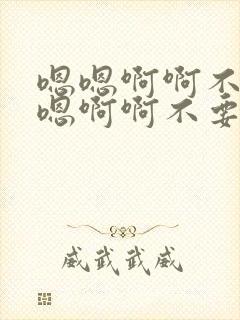 嗯嗯啊啊不
嗯啊啊不要
威武武威